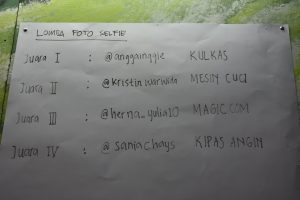 LOMBA FOTO SELFIE
Juara I : @anggainggie KULKAS
Juara II : @kristiniwarwida MESIN CUCI
Juara III : @herna_yulia10 MAGIC COM
Juara IV : @saniachays KIPAS ANGIN